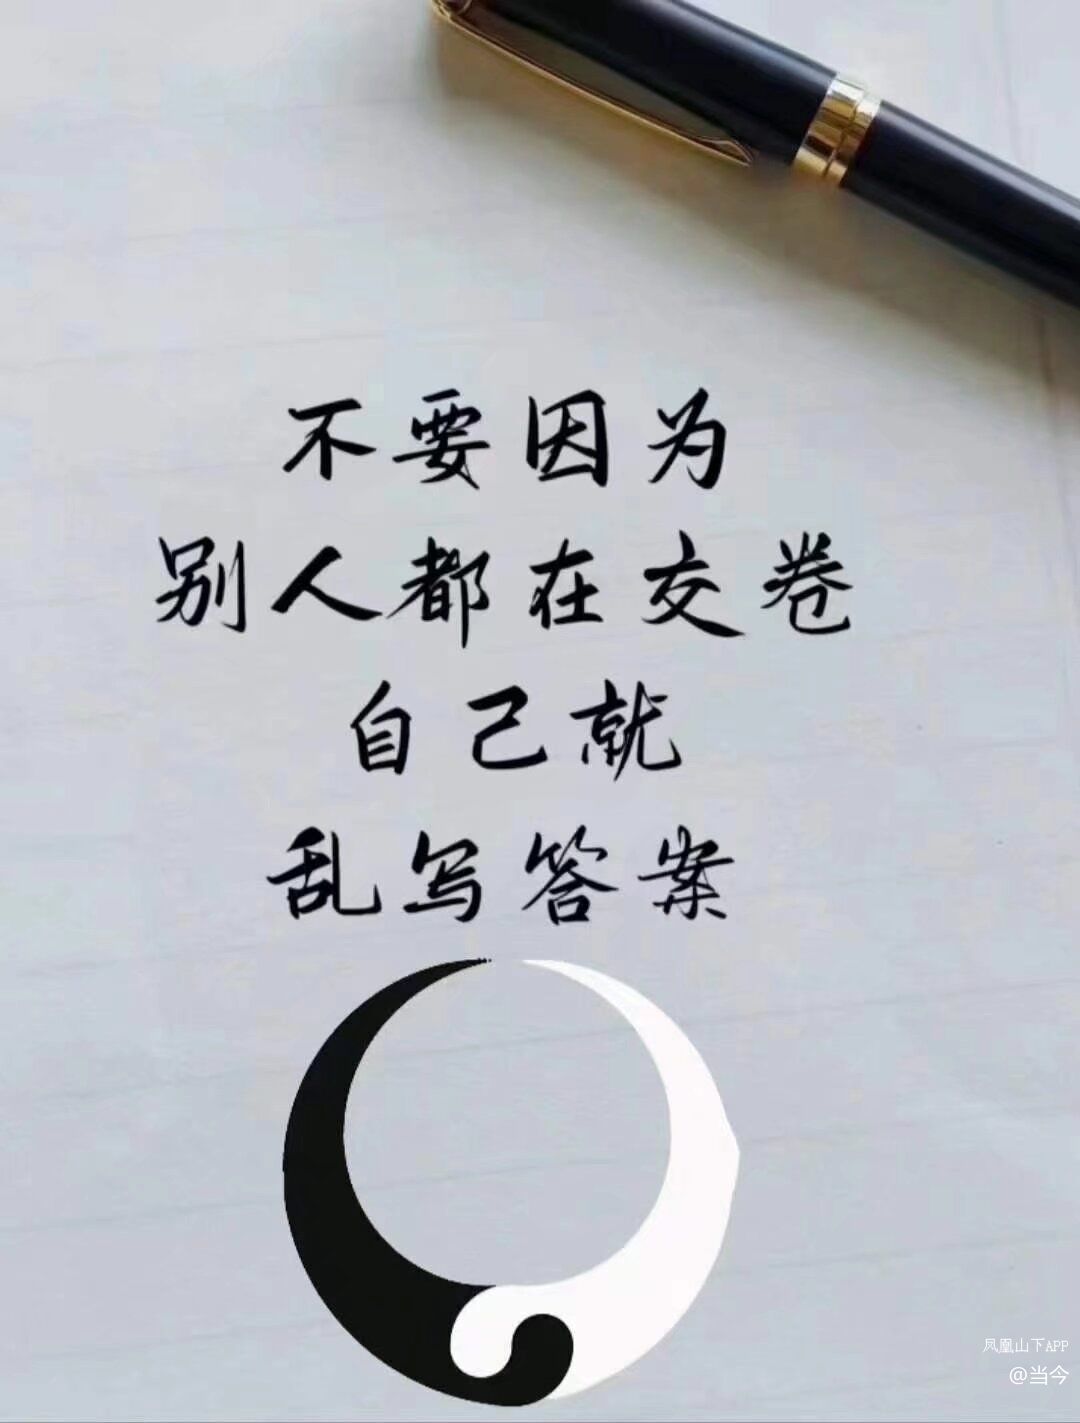 不要因为
别人都在交卷
自己就
乱写答案
凤凰山下APP
@当今